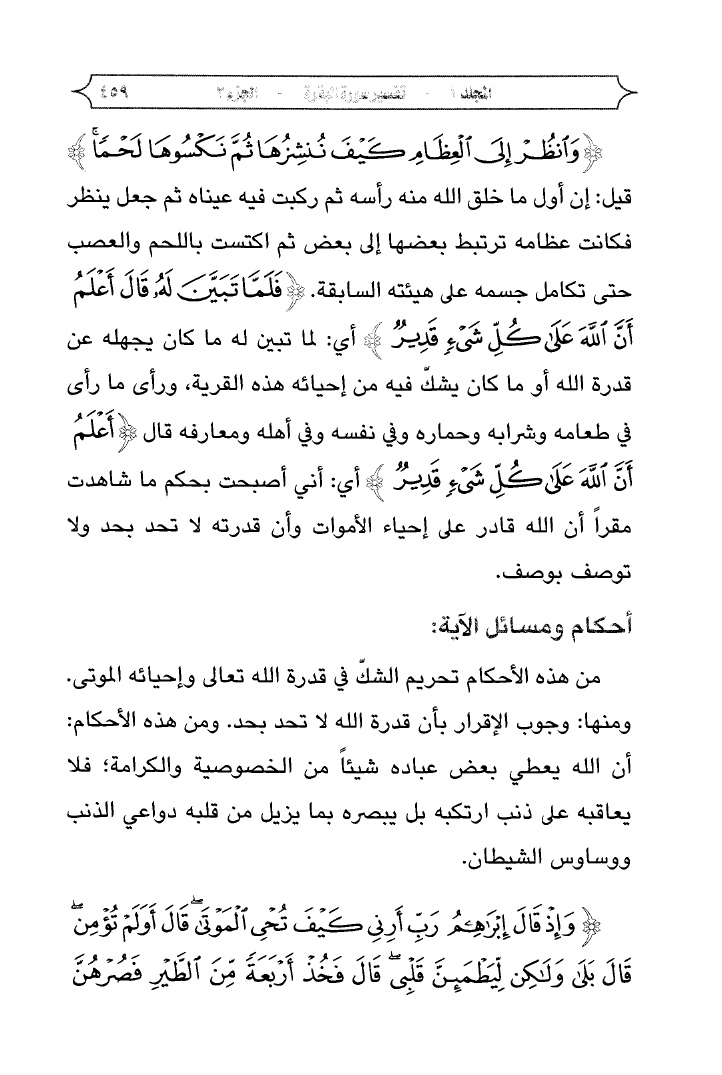 المجلد ١ - تفسير سورة البقرة - الجزء ٣ ٤٥٩
﴿ وَٱنظُرْ إِلَى ٱلْعِظَامِ كَيْفَ نُنشِزُهَا ثُمَّ نَكْسُوهَا لَحْمًا ۚ ﴾
قيل: إن أول ما خلق الله منه رأسه ثم ركبت فيه عيناه ثم جعل ينظر
فكانت عظامه ترتبط بعضها إلى بعض ثم اكتست باللحم والعصب
حتى تكامل جسمه على هيئته السابقة. ﴿ فَلَمَّا تَبَيَّنَ لَهُۥ قَالَ أَعْلَمُ
أَنَّ ٱللَّهَ عَلَىٰ كُلِّ شَىْءٍ قَدِيرٌ ﴾ أي: لما تبين له ما كان يجهله عن
قدرة الله أو ما كان يشكّ فيه من إحيائه هذه القرية، ورأى ما رأى
في طعامه وشرابه وحماره وفي نفسه وفي أهله ومعارفه قال ﴿ أَعْلَمُ
أَنَّ ٱللَّهَ عَلَىٰ كُلِّ شَىْءٍ قَدِيرٌ ﴾ أي: أني أصبحت بحكم ما شاهدت
مقراً أن الله قادر على إحياء الأموات وأن قدرته لا تحد بحد ولا
توصف بوصف.
أحكام ومسائل الآية:
من هذه الأحكام تحريم الشكّ في قدرة الله تعالى وإحيائه الموتى.
ومنها: وجوب الإقرار بأن قدرة الله لا تحد بحد. ومن هذه الأحكام:
أن الله يعطي بعض عباده شيئاً من الخصوصية والكرامة؛ فلا
يعاقبه على ذنب ارتكبه بل يبصره بما يزيل من قلبه دواعي الذنب
ووساوس الشيطان.
﴿ وَإِذْ قَالَ إِبْرَٰهِـۧمُ رَبِّ أَرِنِى كَيْفَ تُحْىِ ٱلْمَوْتَىٰ ۖ قَالَ أَوَلَمْ تُؤْمِن ۖ
قَالَ بَلَىٰ وَلَـٰكِن لِّيَطْمَئِنَّ قَلْبِى ۖ قَالَ فَخُذْ أَرْبَعَةً مِّنَ ٱلطَّيْرِ فَصُرْهُنَّ